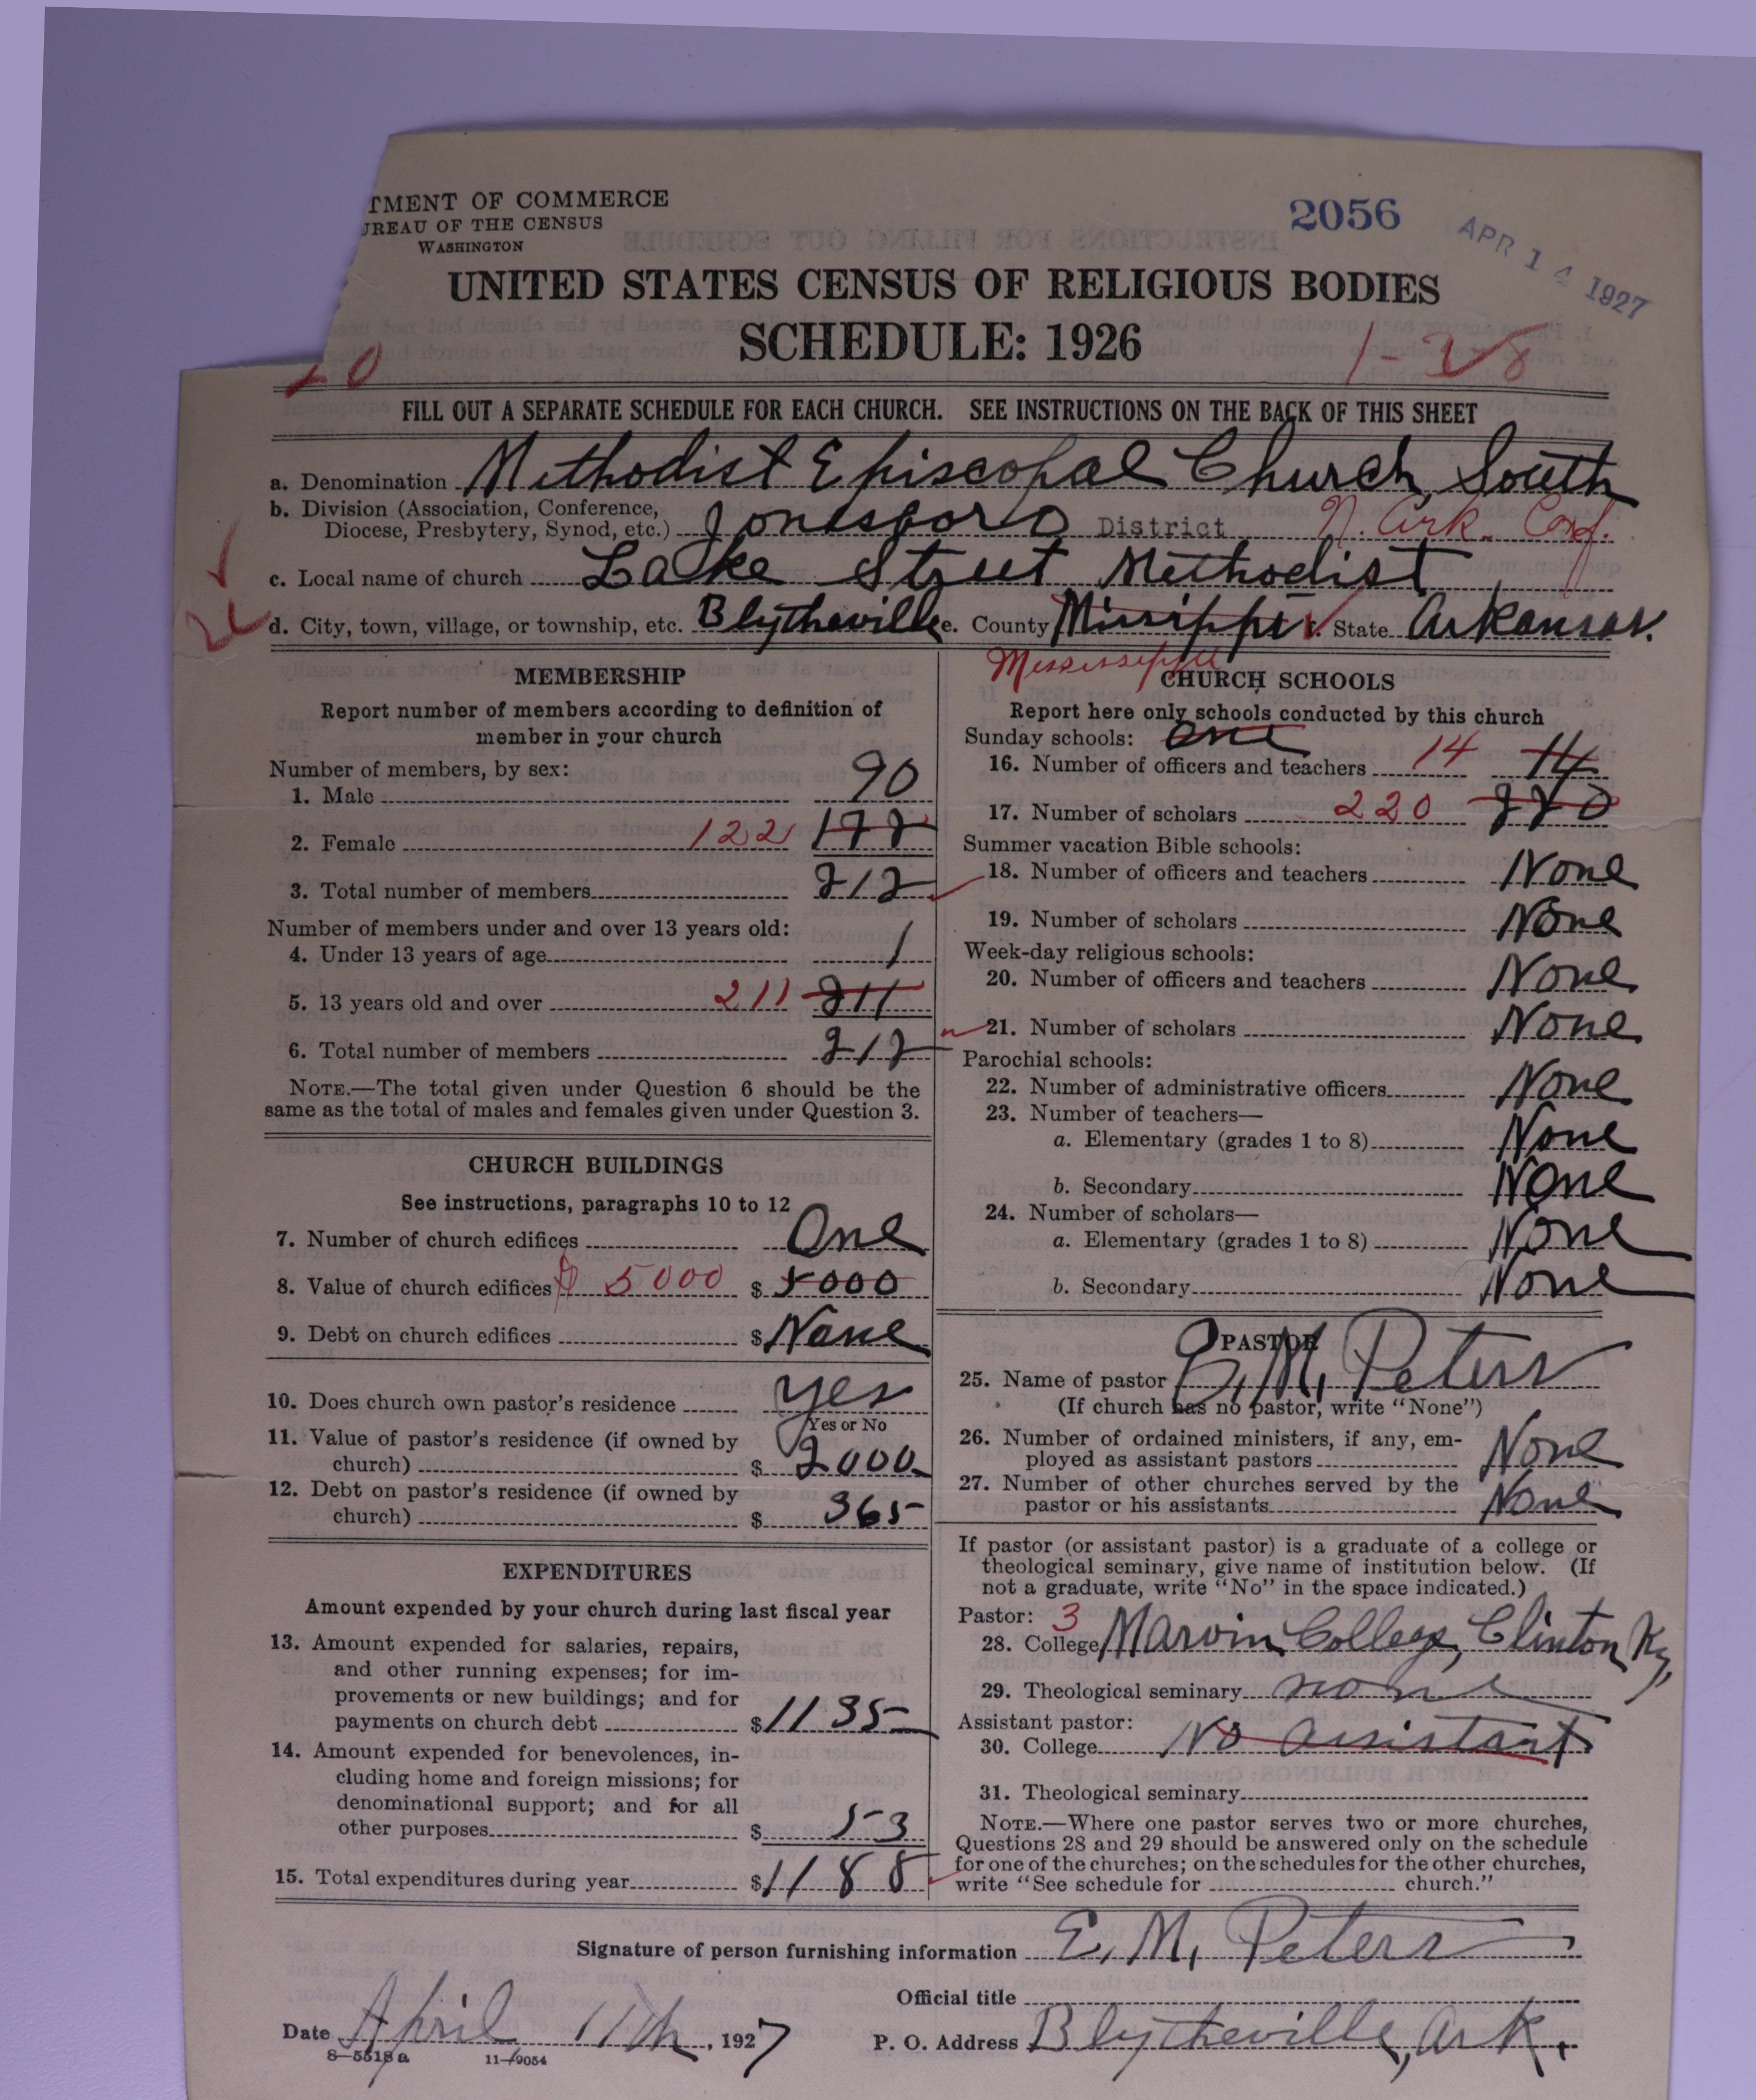 TMENT OF COMMERCE
UREAU OF THE CENSUS
WASHINGTON
2056
APR 14 1927
UNITED STATES CENSUS OF RELIGIOUS BODIES
SCHEDULE: 1926
1-28
0
FILL OUT A SEPARATE SCHEDULE FOR EACH CHURCH. SEE INSTRUCTIONS ON THE BACK OF THIS SHEET
a. Denomination Methodist Episcopal Church, South
b. Division (Association, Conference,
Diocese, Presbytery, Synod, etc.) Jonesboro District N. Ark. Conf.
c. Local name of church Lake Street Methodist
d. City, town, village, or township, etc. Blytheville e. County Missippi f. State Arkansas.
Mississippi
MEMBERSHIP
Report number of members according to definition of
member in your church
Number of members, by sex:
1. Male 90
2. Female 122 122
3. Total number of members 212
Number of members under and over 13 years old:
4. Under 13 years of age 1
5. 13 years old and over 211 211
6. Total number of members 212
NOTE.—The total given under Question 6 should be the
same as the total of males and females given under Question 3.
CHURCH BUILDINGS
See instructions, paragraphs 10 to 12
7. Number of church edifices One
8. Value of church edifices $ 5000 $ 5000
9. Debt on church edifices $ None
10. Does church own pastor's residence Yes
Yes or No
11. Value of pastor's residence (if owned by
church) $ 2000
12. Debt on pastor's residence (if owned by
church) $ 365
EXPENDITURES
Amount expended by your church during last fiscal year
13. Amount expended for salaries, repairs,
and other running expenses; for im-
provements or new buildings; and for
payments on church debt $ 1135
14. Amount expended for benevolences, in-
cluding home and foreign missions; for
denominational support; and for all
other purposes $ 53
15. Total expenditures during year $ 1188
CHURCH SCHOOLS
Report here only schools conducted by this church
Sunday schools: One
16. Number of officers and teachers 14 14
17. Number of scholars 220 220
Summer vacation Bible schools:
18. Number of officers and teachers None
19. Number of scholars None
Week-day religious schools:
20. Number of officers and teachers None
21. Number of scholars None
Parochial schools:
22. Number of administrative officers None
23. Number of teachers—
a. Elementary (grades 1 to 8) None
b. Secondary None
24. Number of scholars—
a. Elementary (grades 1 to 8) None
b. Secondary None
PASTOR
25. Name of pastor E. M. Peters
(If church has no pastor, write "None")
26. Number of ordained ministers, if any, em-
ployed as assistant pastors None
27. Number of other churches served by the
pastor or his assistants None
If pastor (or assistant pastor) is a graduate of a college or
theological seminary, give name of institution below. (If
not a graduate, write "No" in the space indicated.)
Pastor: 3
28. College Marvin College, Clinton Ky,
29. Theological seminary none
Assistant pastor:
30. College No assistant
31. Theological seminary
NOTE.—Where one pastor serves two or more churches,
Questions 28 and 29 should be answered only on the schedule
for one of the churches; on the schedules for the other churches,
write "See schedule for church."
Signature of person furnishing information E. M. Peters
Official title
Date April 11th, 1927 P. O. Address Blytheville, Ark.
8—5518a 11—9054